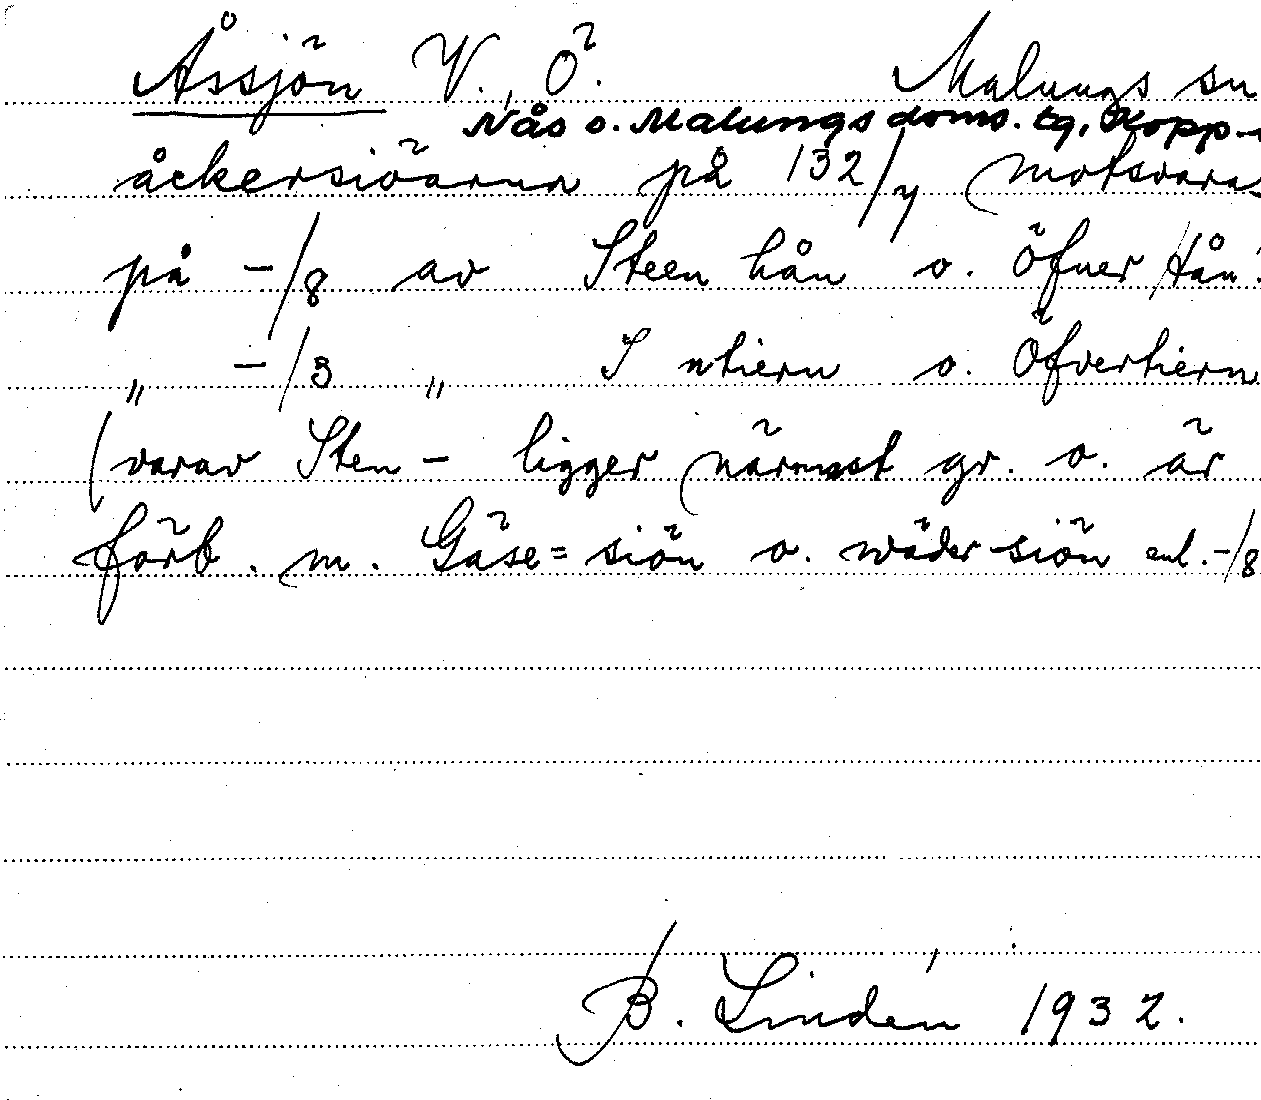 Åssjön V., Ö. Malungs sn
Nås o. Malungs doms. tg, Kopp-
åckersiöarna på 132/y motsvaras
på -/8 av Steen hån o. Öfner Hån
„ -/3 „ S ntiern o. Öfvertiern
(varav Sten - ligger närmast gr. o. är
förb. m. Gäse=siön o. wäder siön enl. -/8
B. Lindén 1932.